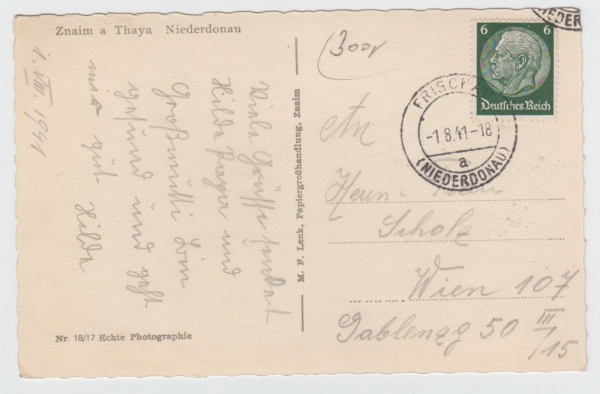 Znaim a Thaya Niederdonau
1. VIII. 1941
Viele Grüsse sendet
Hilde und
Großmutti bin
gesund und geht
mir gut. Hilde
Nr. 18/17 Echte Photographie
M. F. Lenk, Papiergroßhandlung, Znaim
300r
6 6
Deutsches Reich
FRISCH
-1.8.41-18
a
(NIEDERDONAU)
IEDER
An
Herrn
Scholz
Wien 107
Gablenzg 50 III
/15